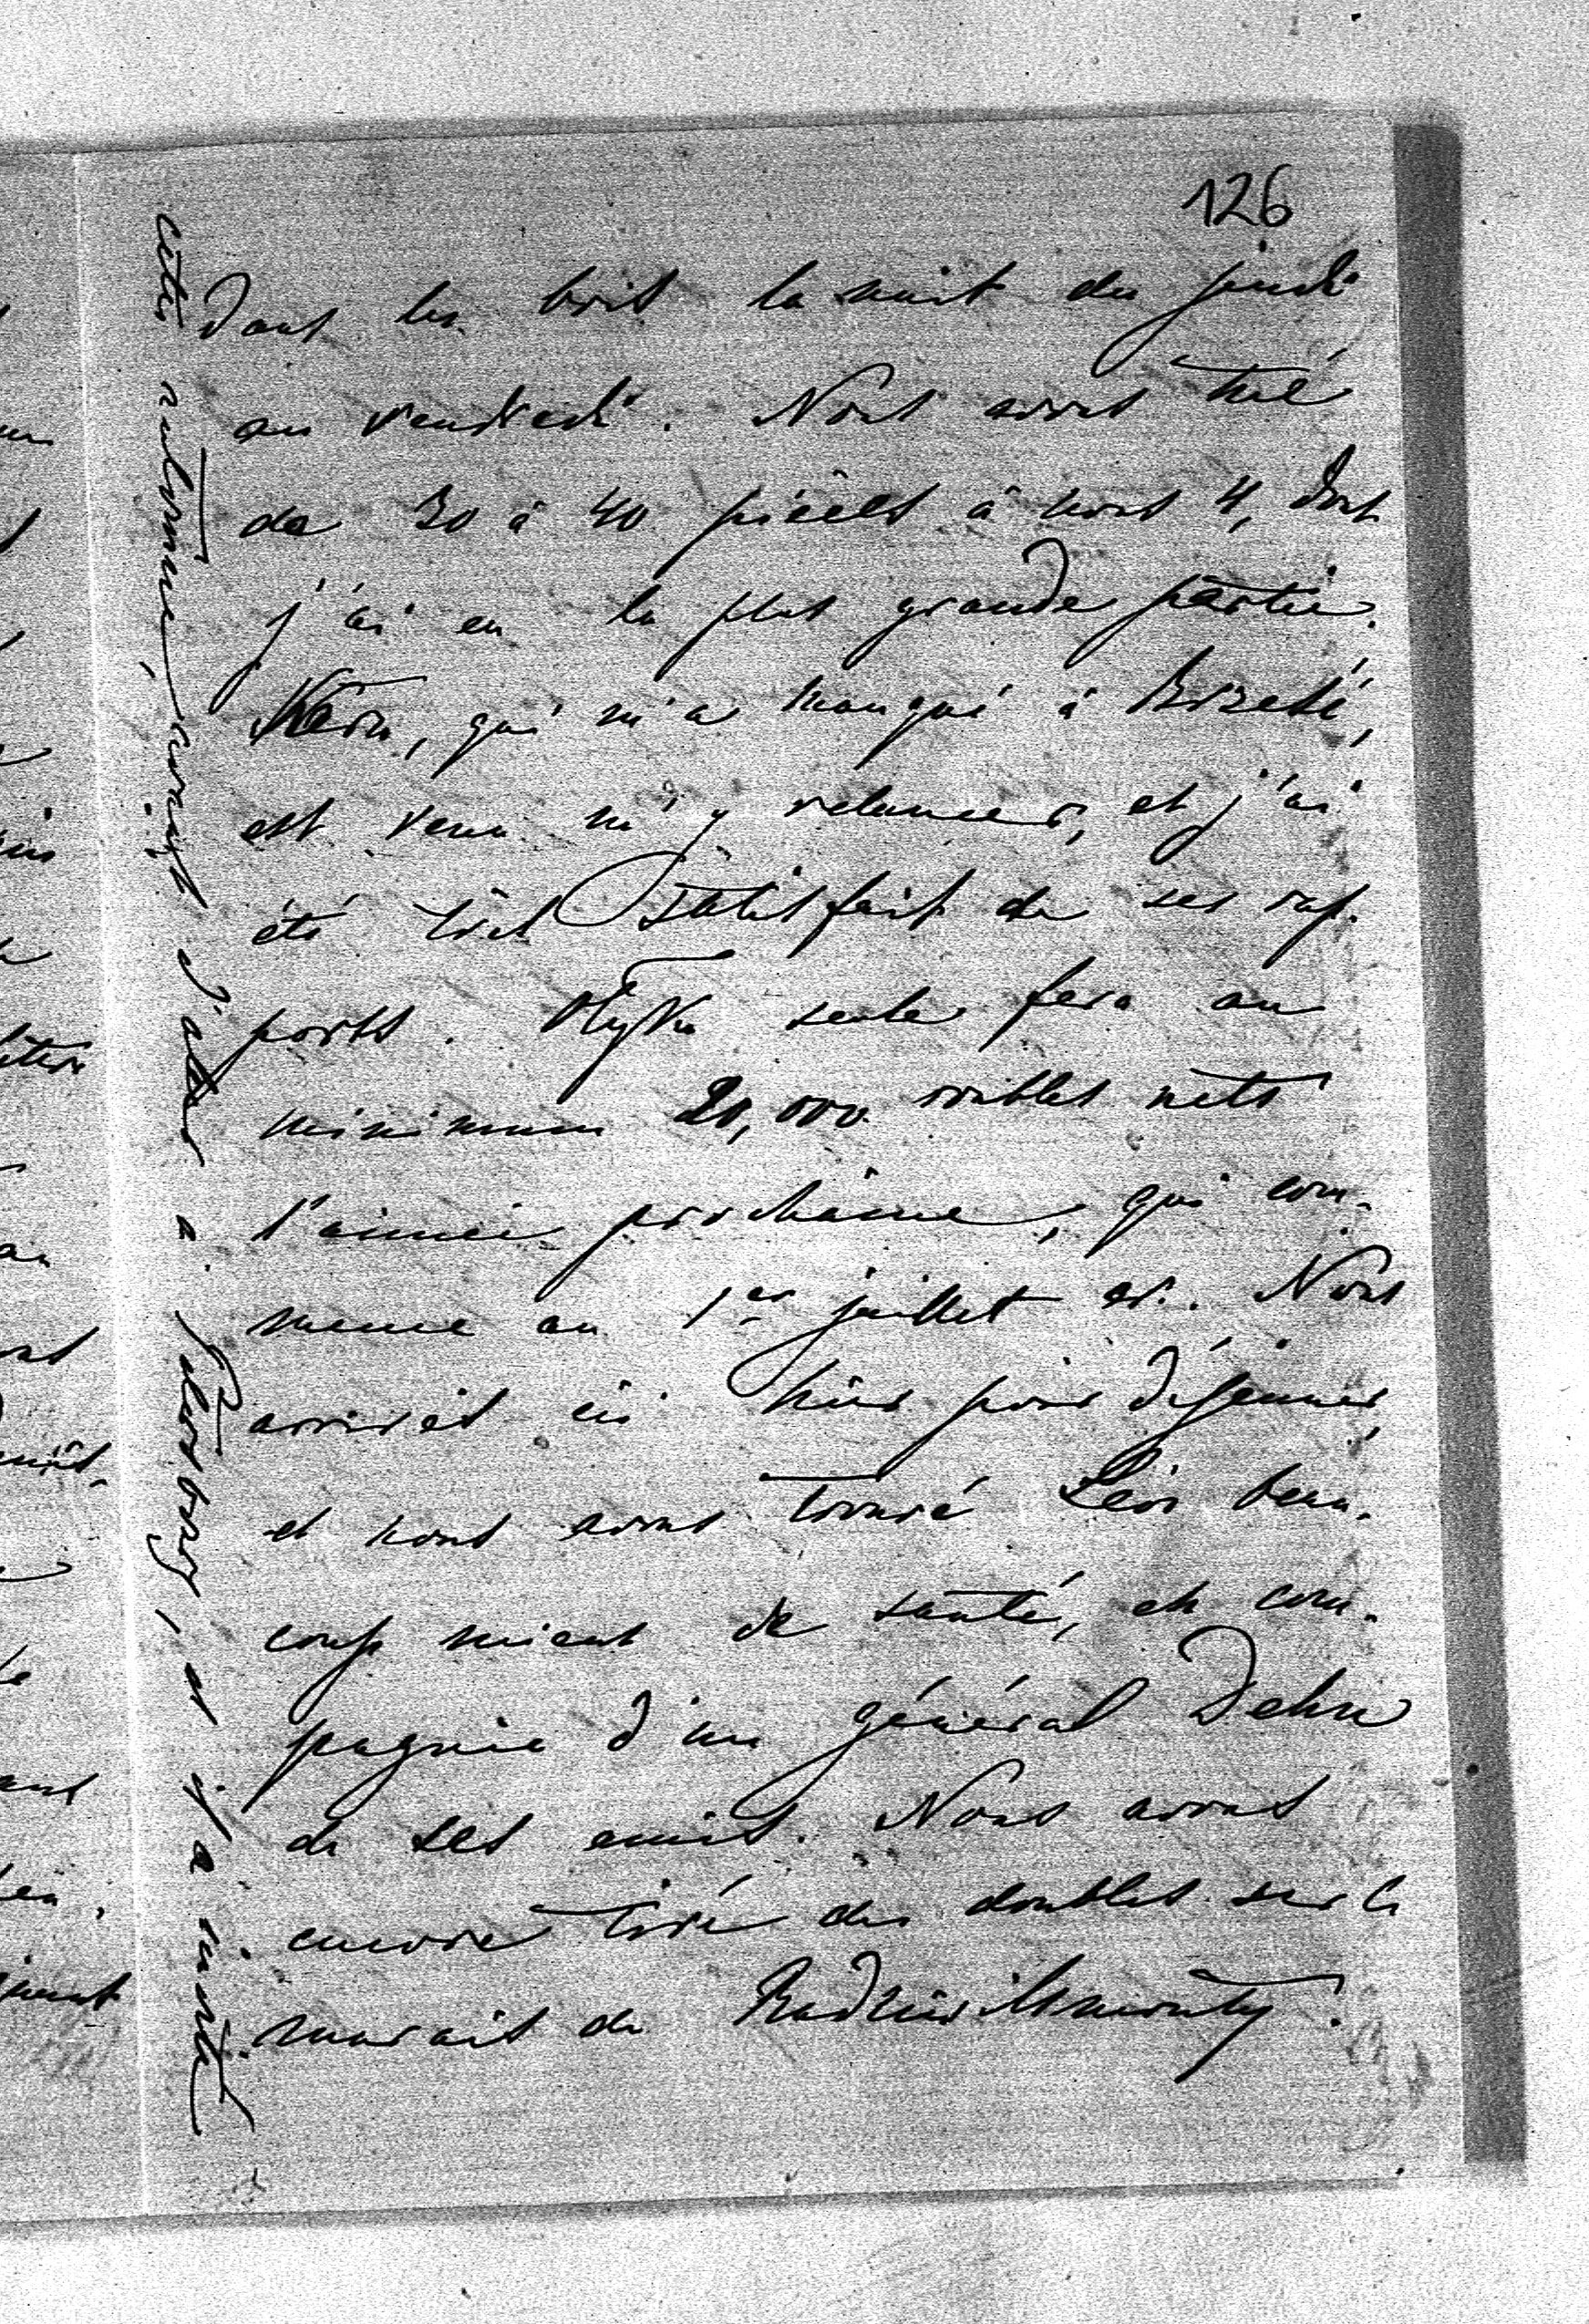 126
dans les bois la nuit du jeudi
au vendredi. Nous avons tué
de 30 à 40 pièces à nous 4, dont
j'ai eu la plus grande partie.
Kern, qui m'a manqué à
est venu m'y relancer, et j'ai
été très satisfait de ses rap-
ports. seule fera au
minimum 20,000 roubles nets
l'année prochaine, qui com-
mence au 1er juillet cr. Nous
arrivés ici hier pour déjeuner,
et nous avons trouvé Léon beau-
coup mieux de santé, en com-
pagnie d'un général Dehn
de ses amis. Nous avons
encore tiré des doubles sur le
marais de
cette automne, avant d'aller à Pétersbourg, et il a insisté